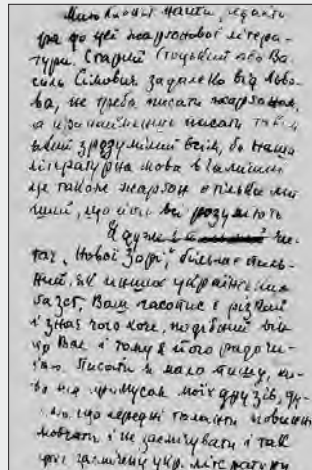 ра до цеї жаргонової літера-
тури. Старий Стоцький або Ва-
силь Сімович задалеко від Льво-
ва, не треба писати жаргоном,
а принайменше писати так
зрозумілий всім, бо наша
літературна мова в Галичині
це також жаргон тільки
що його всі розуміють
Я дуже чи-
тач „Нової Зорі", більше пиль-
ний, як инших українських
газет, Ваш часопис є різкий
і знає чого хоче, подібний він
до Вас і тому я його радо чи-
таю. Писати я мало пишу,
під примусом моїх друзів,
що середні таланти повинні
мовчати і не засмічувати і так
засмічену укр. літературу